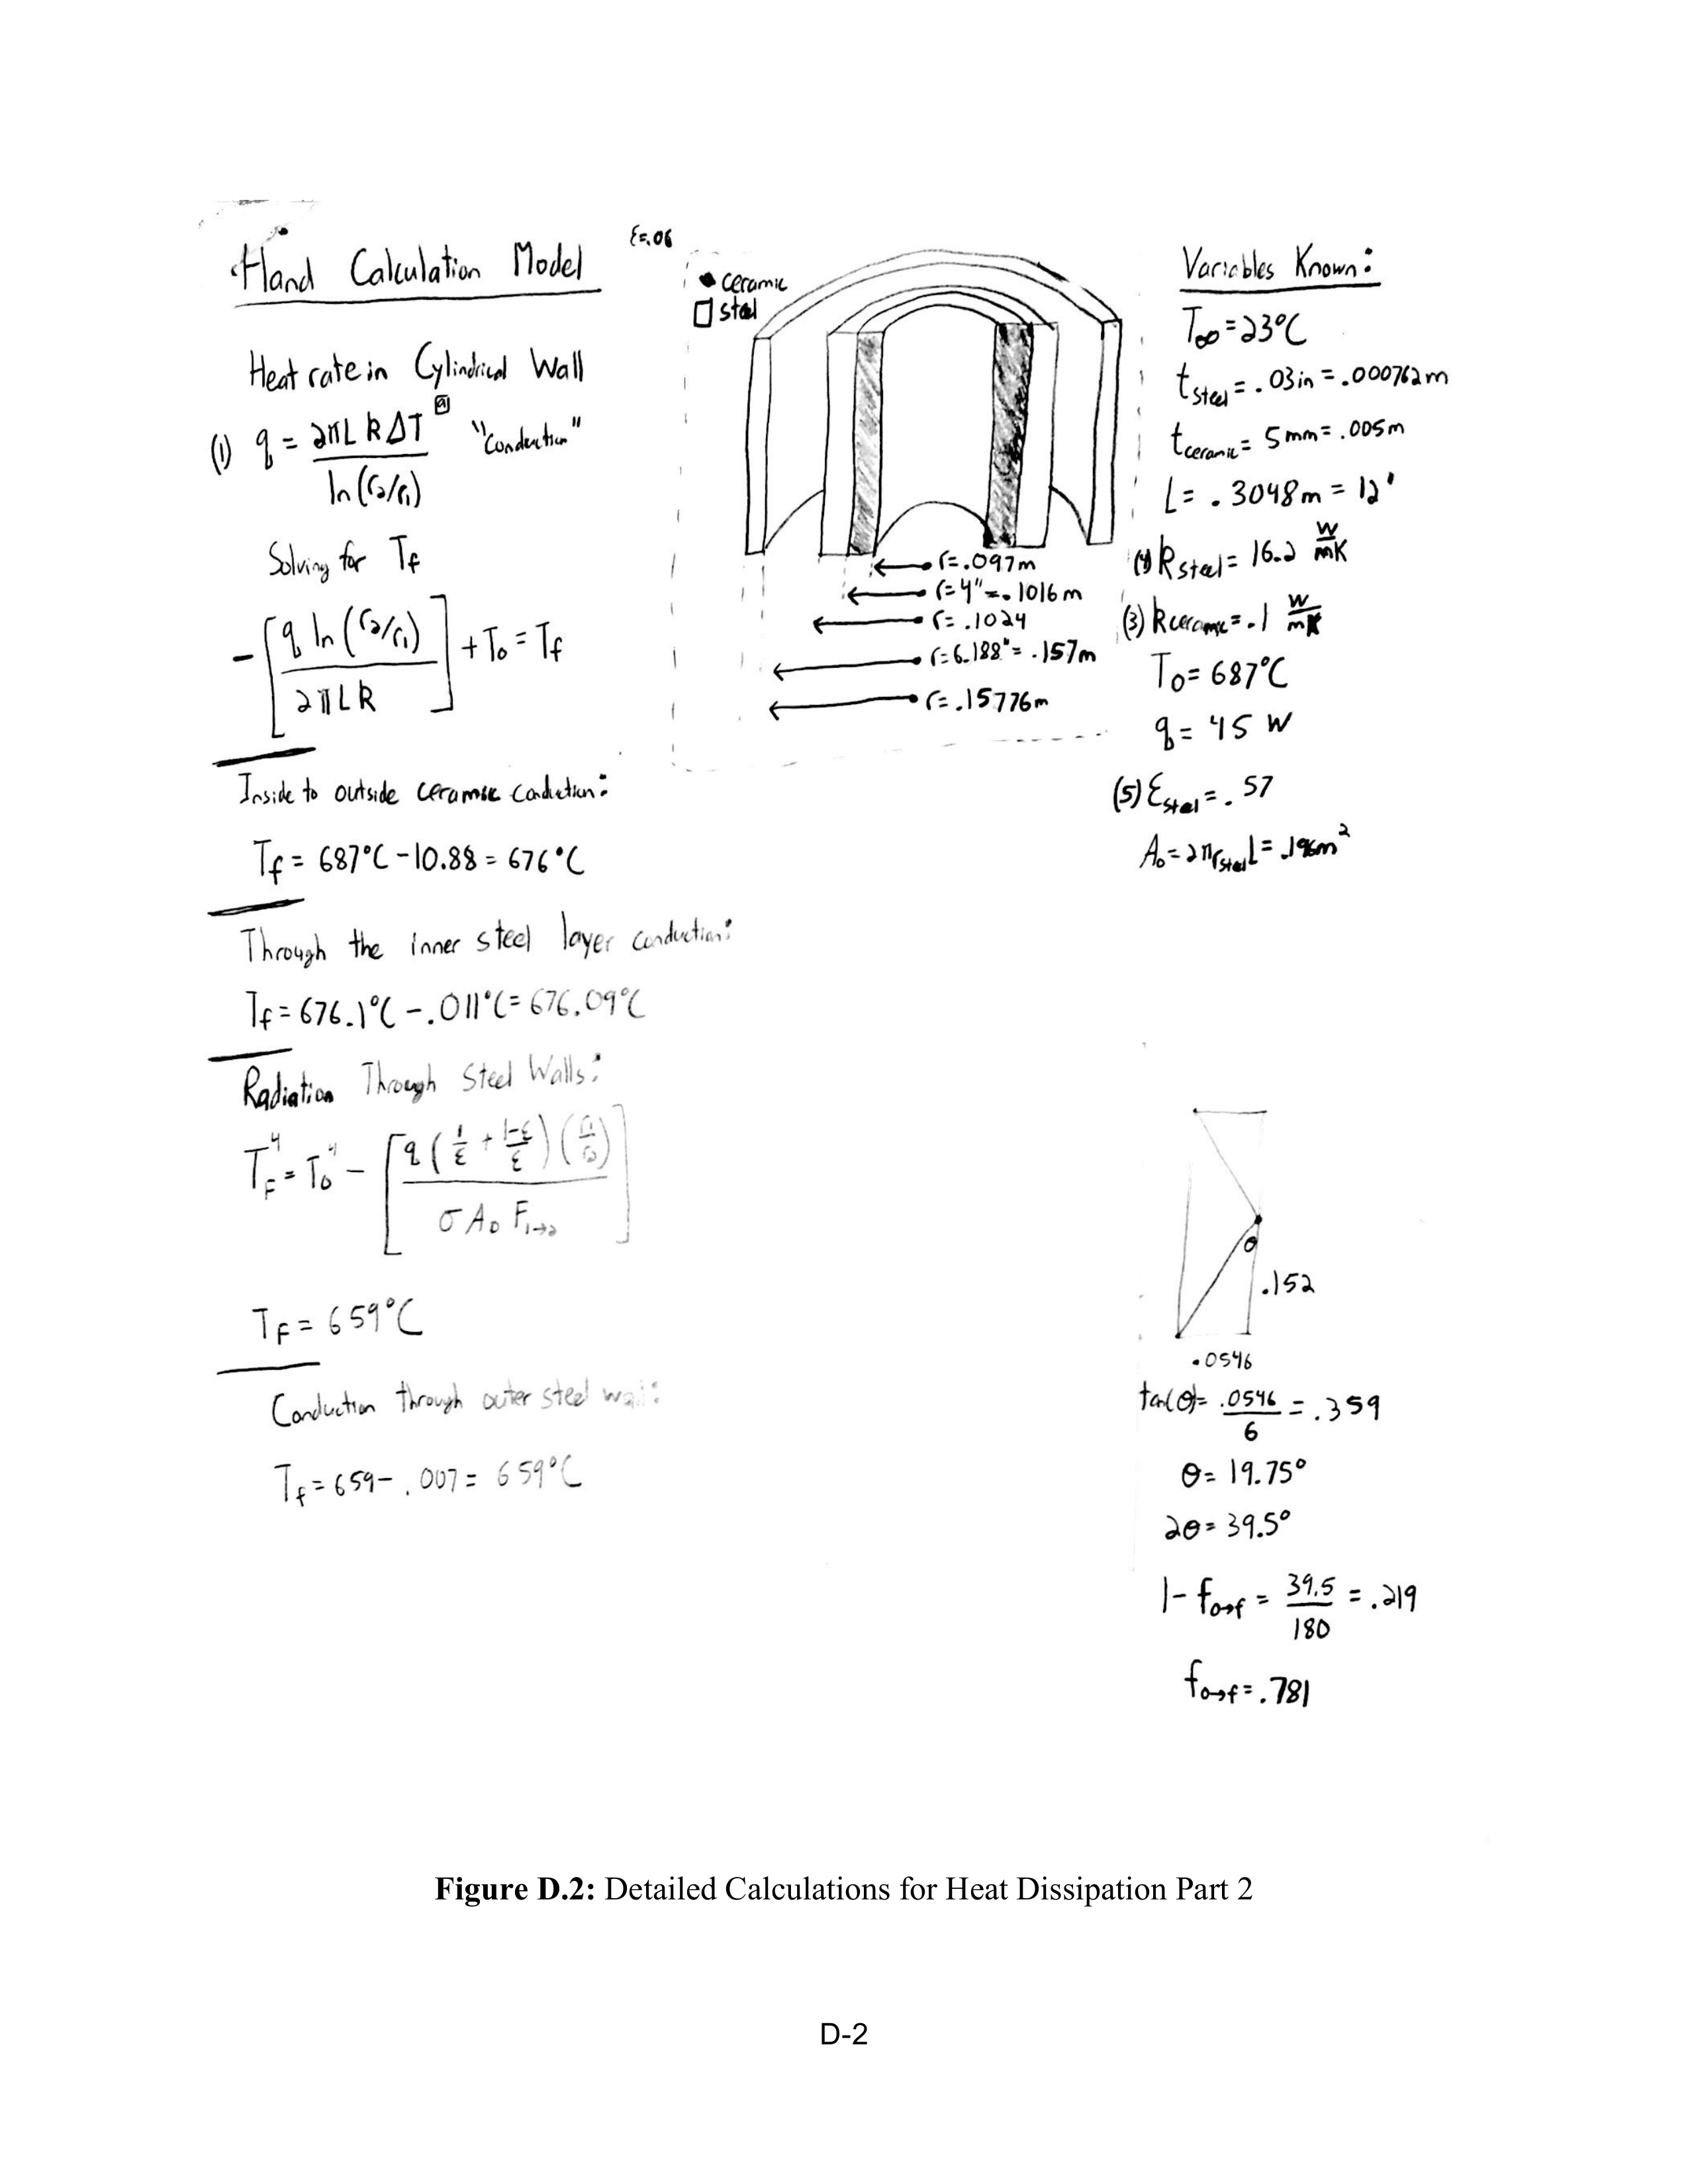 Hand Calculation Model
Heat rate in Cylindrical Wall
(1) q = 2πLkΔT / ln(r₂/r₁) "Conduction"
Solving for Tf
-[q ln(r₂/r₁) / 2πLk] + T₀ = Tf
Inside to outside ceramic conduction:
Tf = 687°C - 10.88 = 676°C
Through the inner steel layer conduction:
Tf = 676.1°C - .011°C = 676.09°C
Radiation Through Steel Walls:
T_F⁴ = T₀⁴ - [q (1/ε + 1-ε/ε)(r₁/r₂) / σ A₀ F₁→₂]
T_F = 659°C
Conduction through outer steel wall:
Tf = 659 - .007 = 659°C
ε=.06
ceramic
steel
r=.097m
r=4"=.1016m
r=.1024
r=6.188"=.157m
r=.15776m
Variables Known:
T∞ = 23°C
t steel = .03in = .000762m
t ceramic = 5mm = .005m
L = .3048m = 12'
(4) k steel = 16.2 W/mK
(3) k ceramic = .1 W/mK
T₀ = 687°C
q = 45 W
(5) ε steel = .57
A₀ = 2πr steel L = .196m²
θ
.152
.0546
tan(θ) = .0546/6 = .359
θ = 19.75°
2θ = 39.5°
1 - f₀→f = 39.5/180 = .219
f₀→f = .781
Figure D.2: Detailed Calculations for Heat Dissipation Part 2
D-2